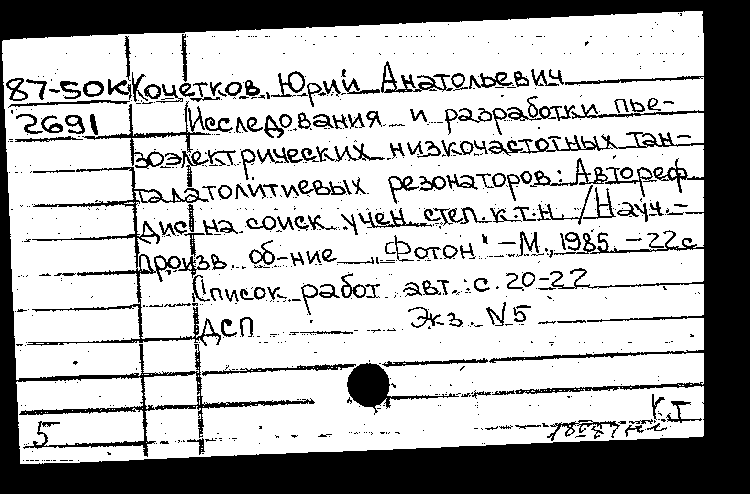 87-50К Кочетков, Юрий Анатольевич
2691 Исследования и разработки пье-
зоэлектрических низкочастотных тан-
талатолитиевых резонаторов: Автореф
дис на соиск. учен. степ. к.т.н. /Науч.-
произв. об-ние „Фотон" -М., 1985. -22с
Список работ авт.: с. 20-22
ДСП Экз. N5
К.Т
5